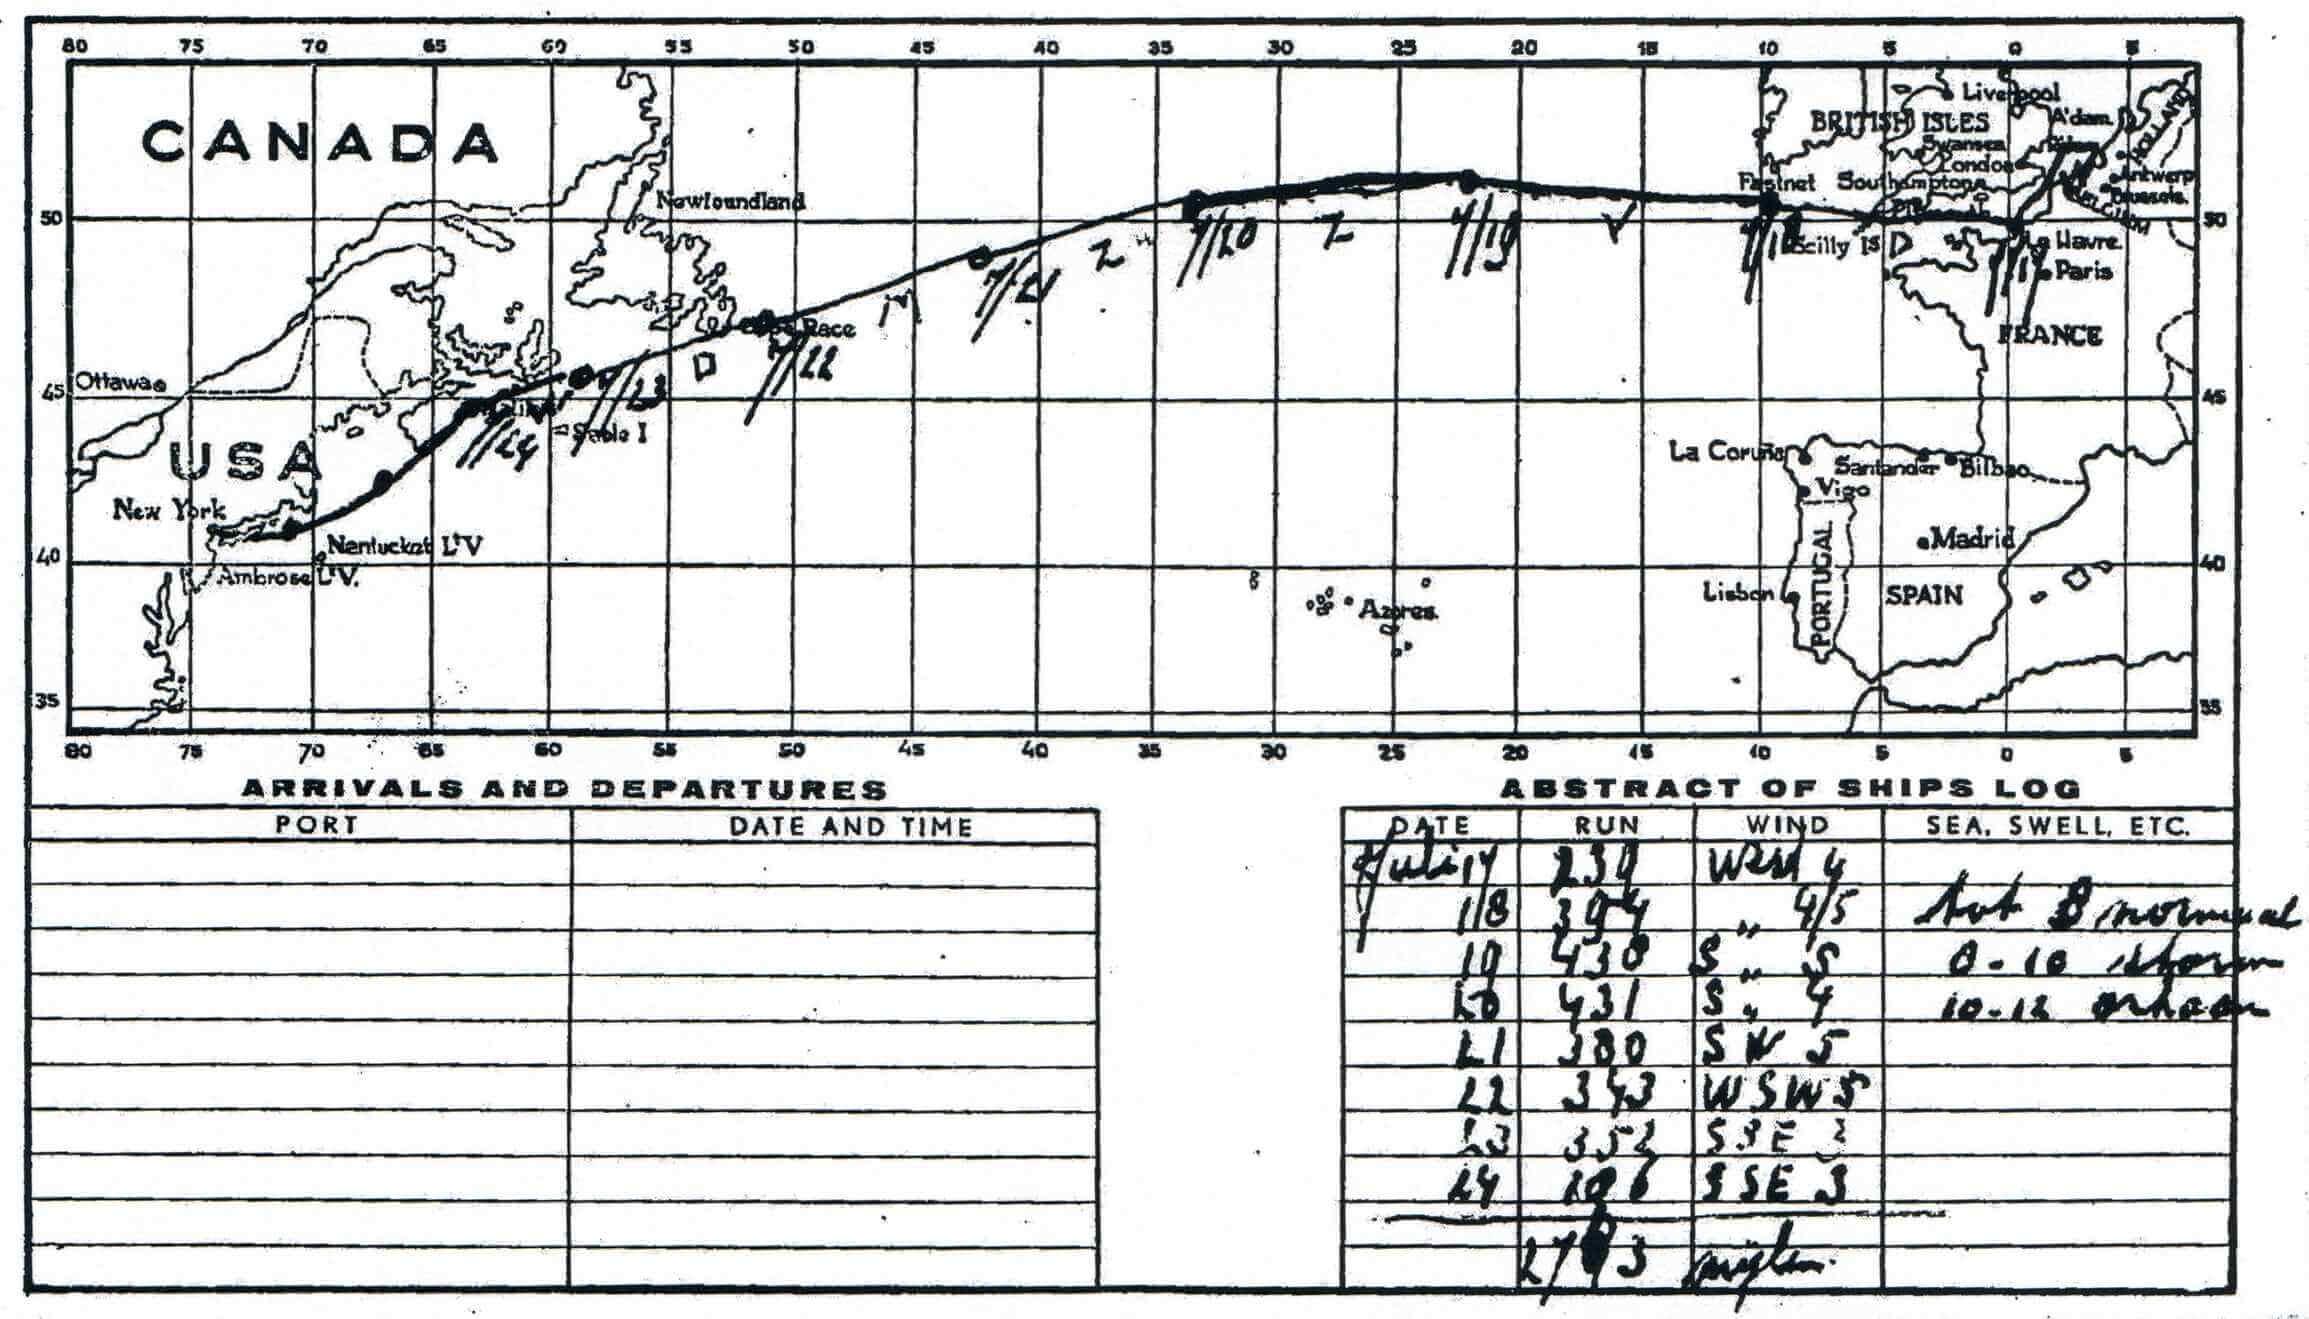 80 75 70 65 60 55 50 45 40 35 30 25 20 15 10 5 0 5
CANADA
Liverpool
BRITISH ISLES
A'dam
HOLLAND
Swansea
London
Newfoundland
Fastnet Southampton
Antwerp
Brussels.
BELGIUM
50 50
7/20 Z 7/19 V 7/18 Scilly Is D
Le Havre.
7/21 Z
Paris
M
Cape Race
FRANCE
7/22
D
Ottawa
45 45
7/23
Halifax
Sable I
7/24
USA
La Coruña
Santander Bilbao
Vigo
New York
Nantucket L'V
Madrid
40 40
Ambrose L'V.
PORTUGAL
Lisbon
SPAIN
Azores.
35 35
80 75 70 65 60 55 50 45 40 35 30 25 20 15 10 5 0 5
ARRIVALS AND DEPARTURES
PORT DATE AND TIME
ABSTRACT OF SHIPS LOG
DATE RUN WIND SEA, SWELL, ETC.
Juli 17 WSW 4
18 394 „ 4/5 tot 8 normaal
19 430 S „ 5 8-10 storm
20 431 S „ 4 10-12 orkaan
21 380 SW 5
22 343 WSW 5
23 352 SSE 3
24 106 SSE 3
mijlen.